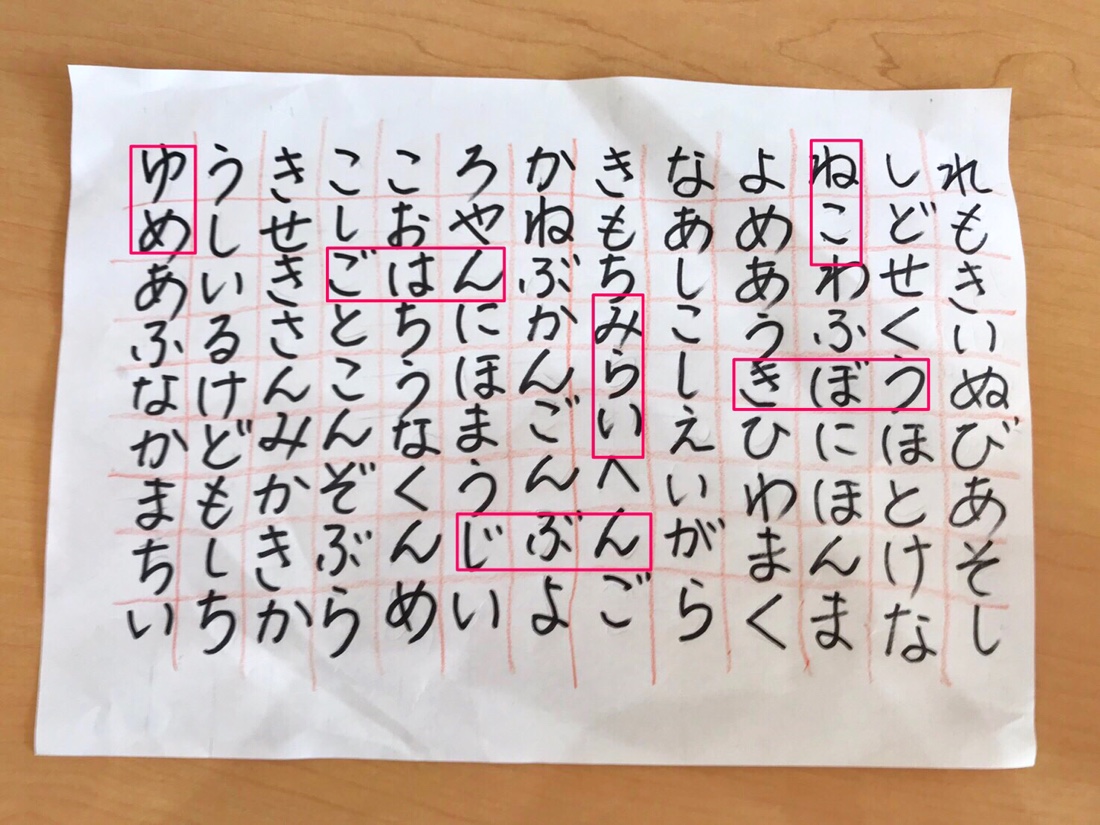 ゆうきここころかきなよねしれ
めしせしおやねもあめこども
あいきごはんぶちしあわせき
ふるさとちにかみこうふくい
なけんこうほんらしきぼうぬ
かどみんなまごいえひにほび
まもかぞくうんへいわほとあ
ちしきぶんじぶんがまんけそ
いちからめいよごらくまなし